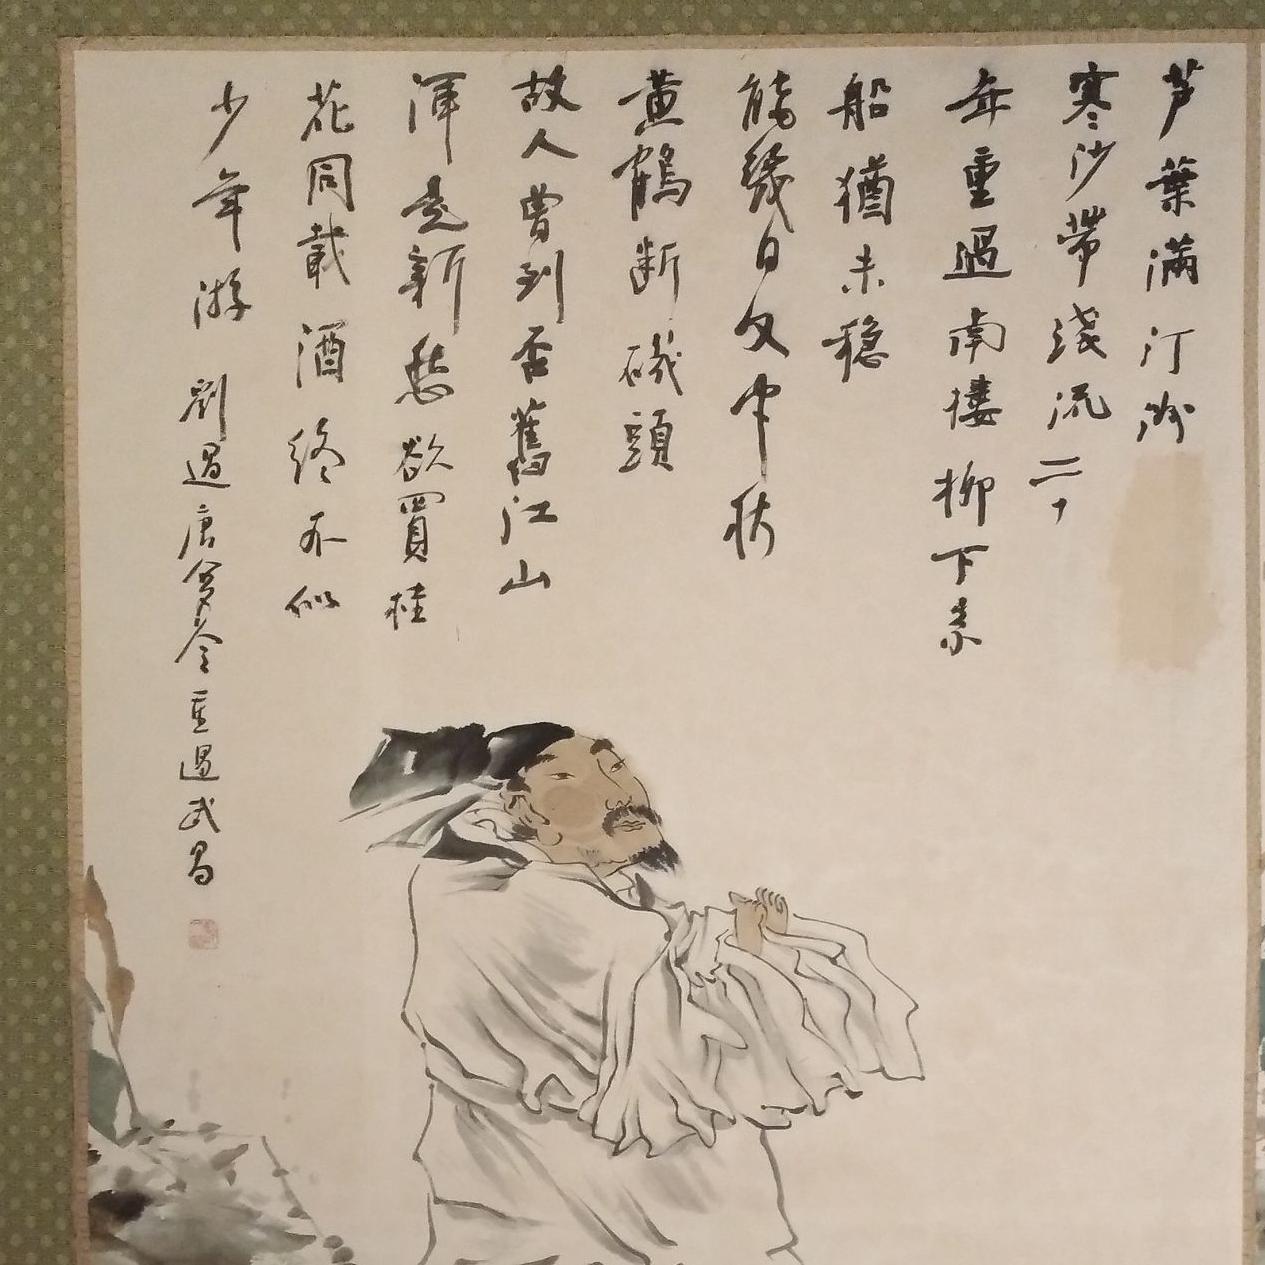 芦葉滿汀洲
寒沙帶淺流二十
年重過南樓柳下系
船猶未穩
能幾日又中秋
黄鶴斷磯頭
故人曾到否舊江山
渾是新愁欲買桂
花同載酒終不似
少年游 劉過唐多令重過武昌